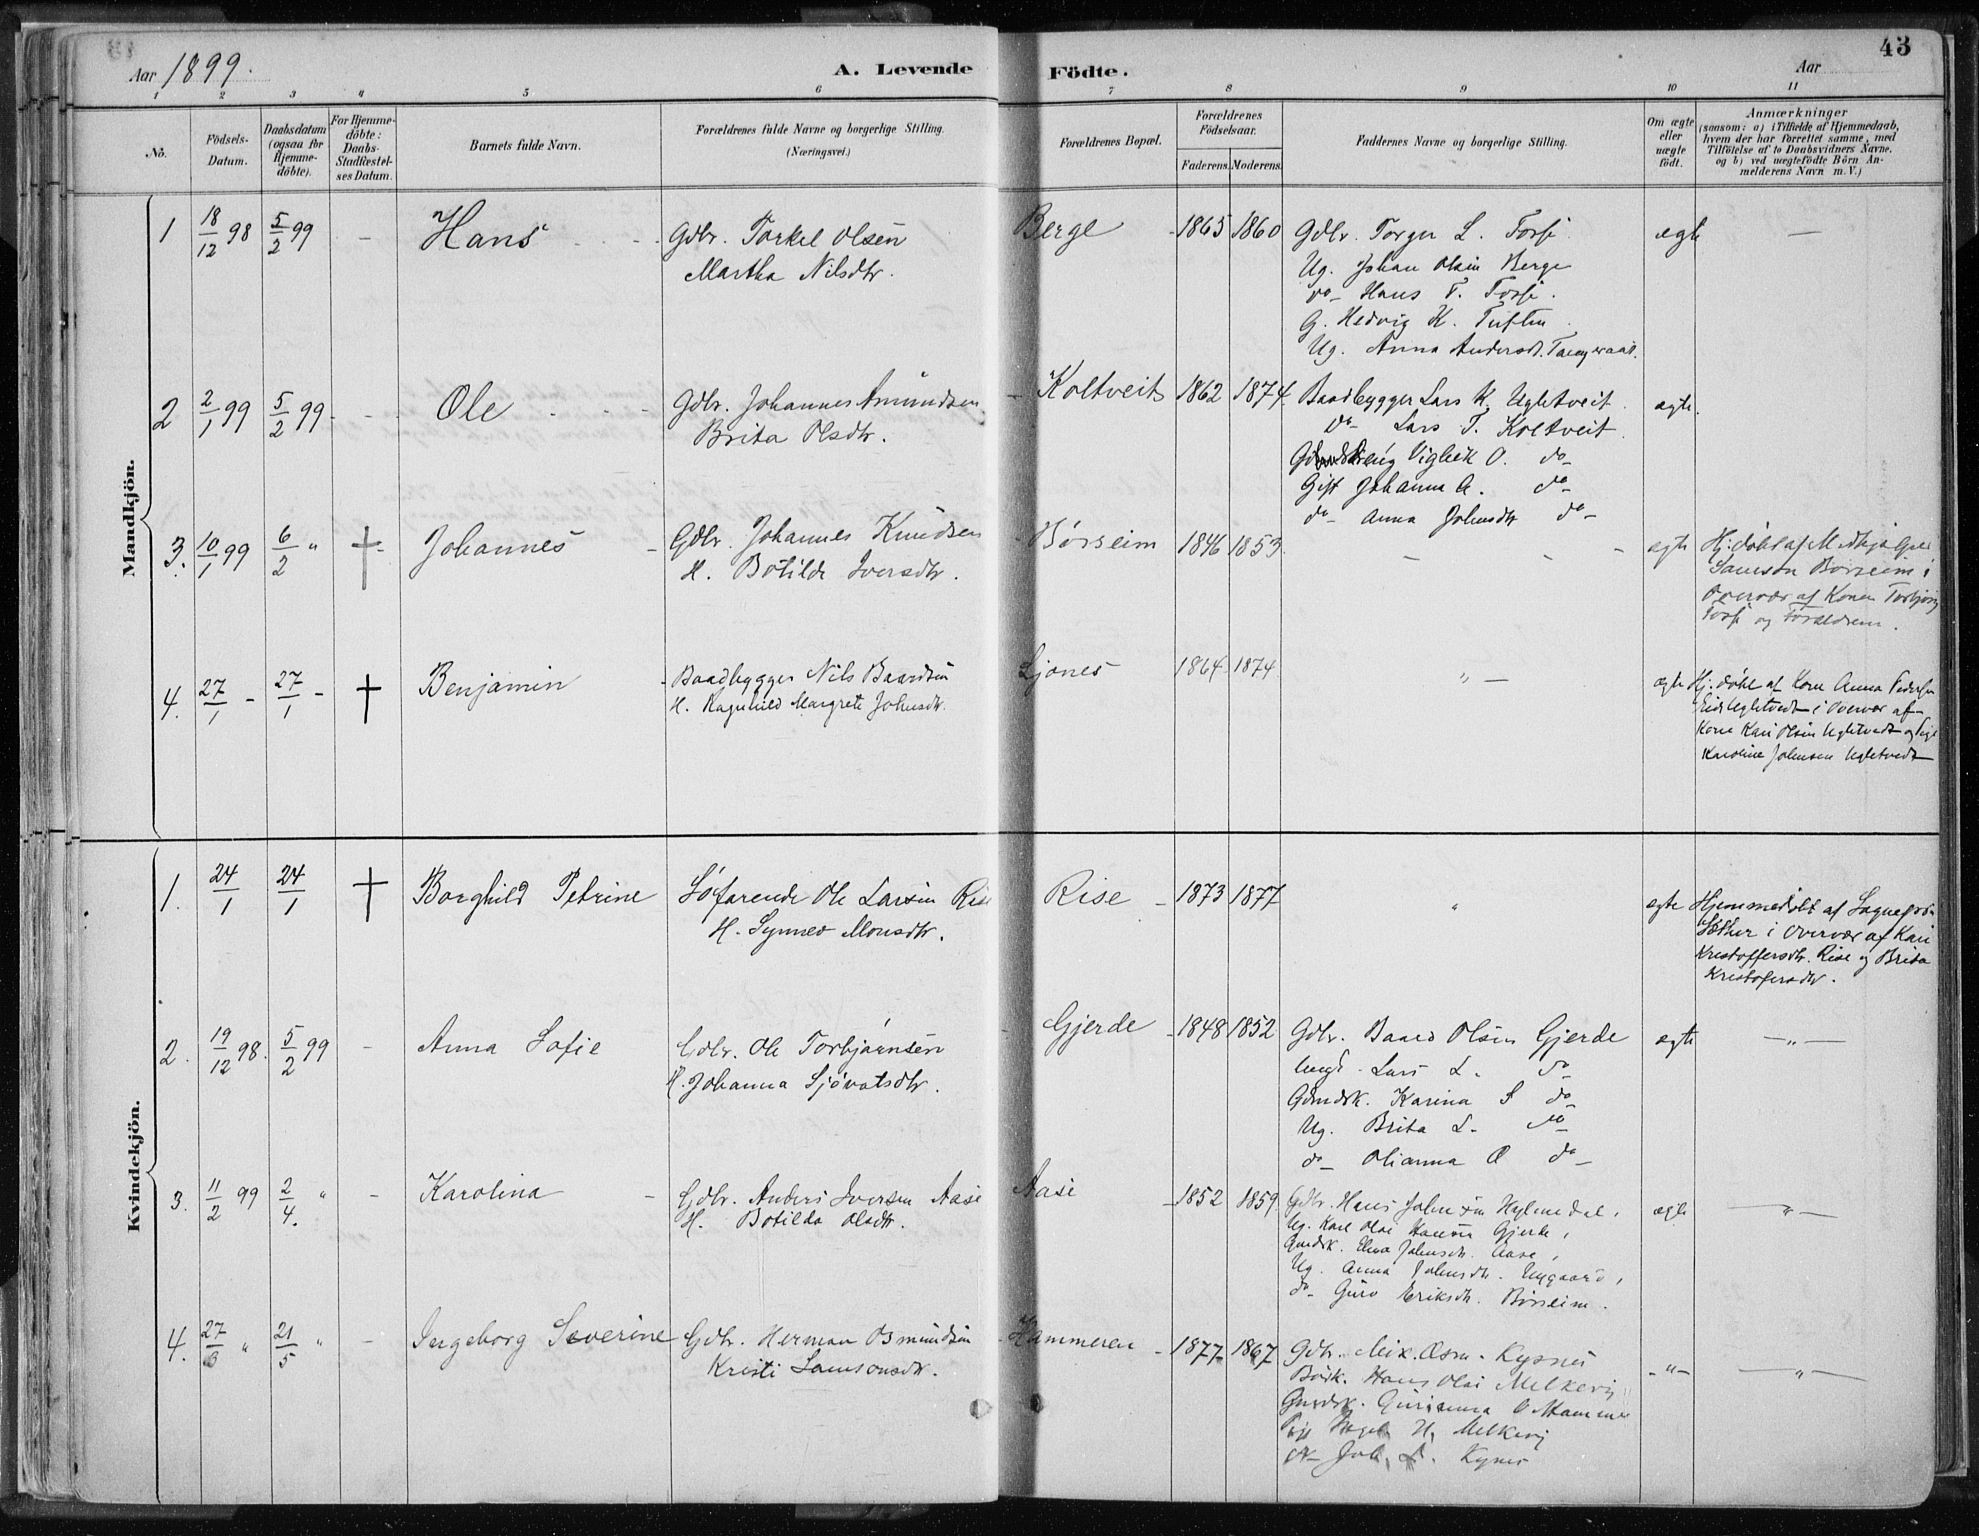 Aar 1899.
A. Levende Födte.
Aar
43
1 2 3 4 5 6 7 8 9 10 11
No.
Födsels-Datum.
Daabsdatum (ogsaa for Hjemme-döbte).
For Hjemme-döbte: Daabs-Stadfæstel-ses Datum.
Barnets fulde Navn.
Forældrenes fulde Navne og borgerlige Stilling.
(Næringsvei.)
Forældrenes Bopæl.
Forældrenes Födselsaar.
Faderens. Moderens.
Faddernes Navne og borgerlige Stilling.
Om ægte eller uægte födt.
Anmærkninger
(saasom: a) i Tilfælde af Hjemmedaab, hvem der har forrettet samme, med Tilföielse af to Daabsvidners Navne, og b) ved uægtefödte Börn An-melderens Navn m. V.)
Mandkjön.
1 18/12 98 5/2 99 - Hans Gdbr. Torkel Olsen Berge 1865 1860 Gdbr. Torger L. ægte —
Martha Nilsdtr.
Ug. Johan Olsen Berge
do Hans T.
G. Hedvig K. Tuften
Ug. Anna Andersdt.
2 2/1 99 5/2 99 - Ole Gdbr. Johannes Amundsen Koltveit 1862 1874 Baadbygger Lars K. Ugletveit ægte.
Brita Olsdtr.
do Lars T. Koltveit
Vigleik O. do
Gift Johanna A. do
do Anna Johnsdtr do
3. 10/1 99 6/2 " † Johannes Gdbr. Johannes Knudsen Børseim 1846 1853 - - - ægte Hj. døbt af
H. Botilde Iversdtr.
Samson Børseim i
Overvær af Konen
og Forældrene.
4. 27/1 - 27/1 - † Benjamin Baadbygger Nils Baardsen Ljones 1864 1874 " — ægte Hj. døbt af Kone Anna
H. Ragnhild Margrete Johnsdtr.
Ugletvedt i Overvær af
Kone Kari Olsen Ugletvedt og Pige
Karoline Johnsen Ugletvedt
Kvindekjön.
1. 24/1 24/1 † Borghild Petrine Søfarende Ole Larsen Rise Rise 1873 1877 " ægte Hjemmedøbt af
H. Synneve Monsdtr.
Sæther i Overvær af Kari
Kristoffersdtr. Rise og Brita
Kristofersdtr.
2. 19/12 98. 5/2 99 - Anna Sofie Gdbr. Ole Torbjørnsen Gjerde 1848 1852 Gdbr. Baard Olsen Gjerde ægte —"—
H. Johanna Sjovatsdtr.
Ungk. Lars L. do
Gdmdsk. Karina S do
Ug. Brita L. do
do Olianna O do
3. 11/2 99 2/4. " - Karolina Gdbr. Anders Iversen Aase Aase 1852 1859 Gdbr. Hans Johnsen ægte —"—
H. Botilda Olsdtr.
Ug. Karl Olai Gjerde,
Gmdsk. Johnsdtr. Aase,
Ug. Anna Johnsdtr.
do Guro Eriksdtr. Børseim.
4. 27/3 " 21/5 " - Ingeborg Severine Gdbr. Herman Osmundsen Hammeren 1877 1867 Gdbr. -"- —"—
Kristi Samsonsdtr.
Hans Olai Melkevig
Gmdsk. Gurianna O
H. Melkevig